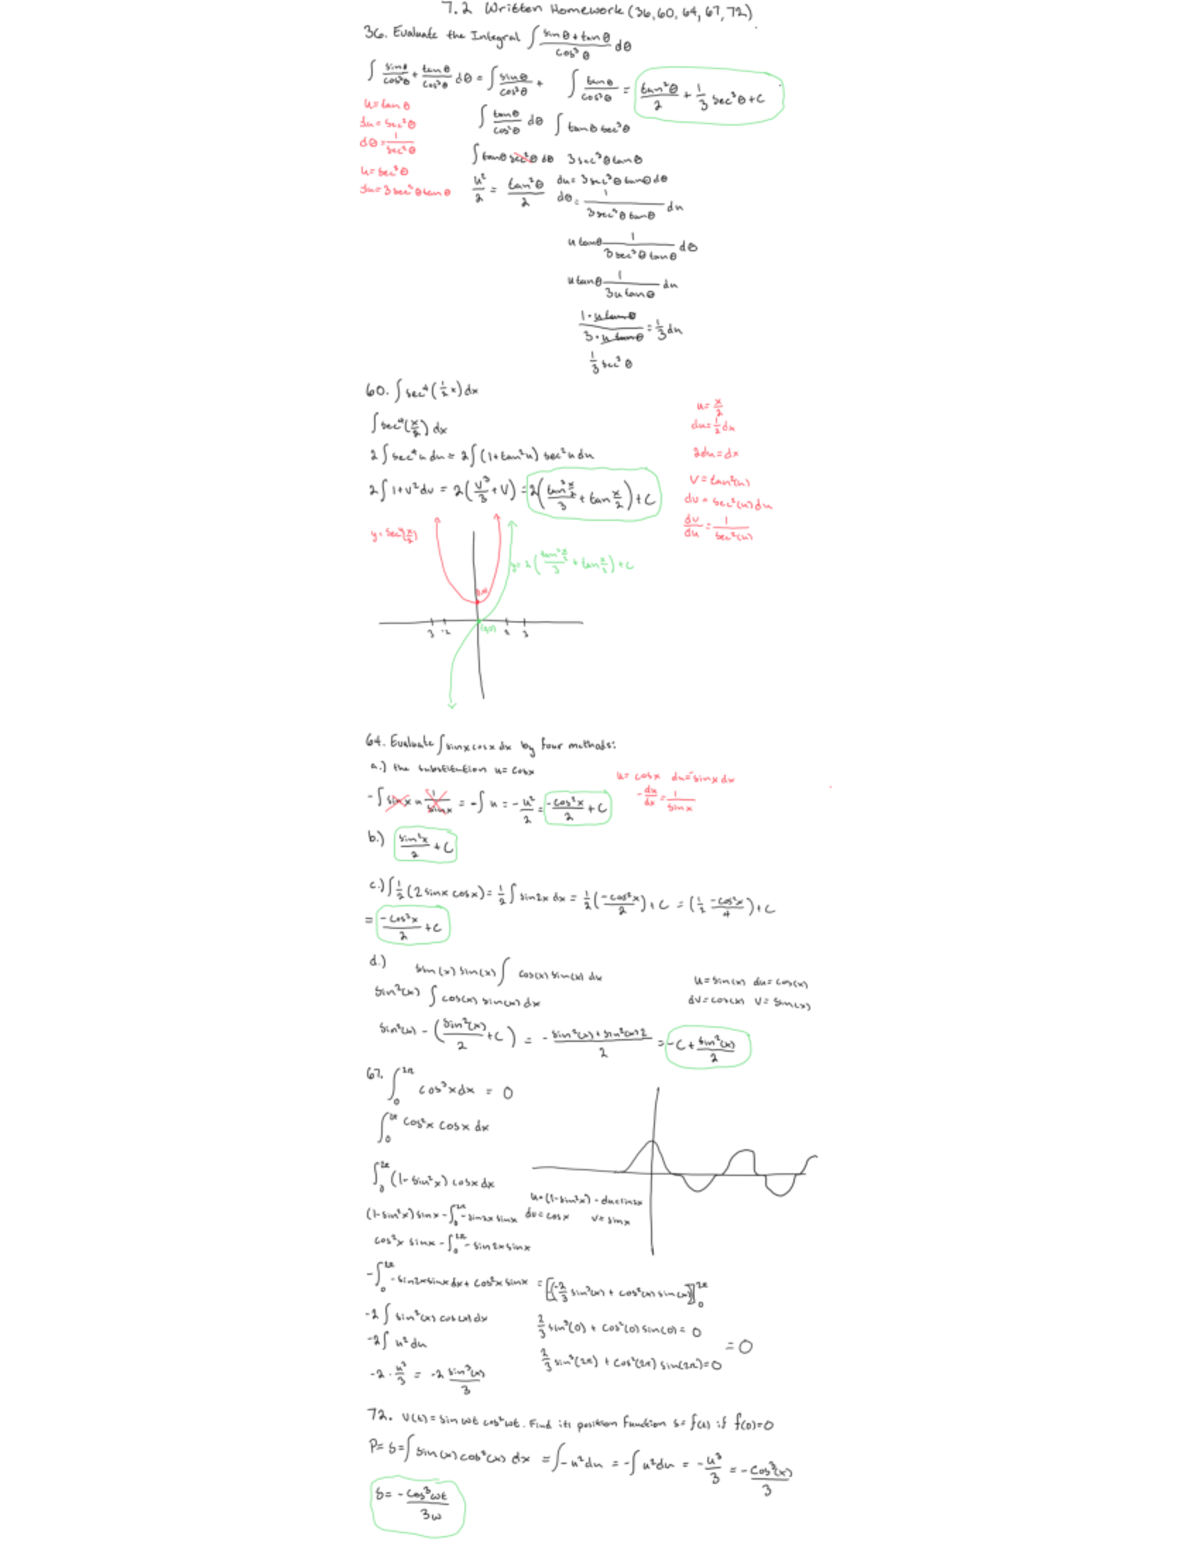 7.2 Written Homework (36, 60, 64, 67, 72)
36. Evaluate the Integral ∫ (sinθ + tanθ)/cos³θ dθ
∫ sinθ/cos³θ + tanθ/cos³θ dθ = ∫ sinθ/cos³θ + ∫ tanθ/cos³θ = tan²θ/2 + 1/3 sec³θ + C
u = tanθ
du = sec²θ
dθ = 1/sec²θ
u = sec³θ
du = 3sec³θtanθ
∫ tanθ/cos²θ dθ ∫ tanθ sec³θ
∫ tanθ sec²θ dθ 3sec³θtanθ
u²/2 = tan²θ/2 du = 3sec³θtanθdθ
dθ = 1/(3sec³θtanθ) du
u tanθ 1/(3sec³θtanθ) dθ
u tanθ 1/(3u tanθ) du
(1·u tanθ)/(3·u tanθ) = 1/3 du
1/3 sec³θ
60. ∫ sec⁴(1/2 x) dx
∫ sec⁴(x/2) dx
2∫ sec⁴u du = 2∫ (1+tan²u) sec²u du
2∫ 1+v² dv = 2(v³/3 + v) = 2(tan³ x/2 /3 + tan x/2) + C
u = x/2
du = 1/2 dx
2du = dx
v = tan(u)
dv = sec²(u) du
dv/du = 1/sec²(u)
y = sec⁴(x/2)
y = 2(tan³ x/2 /3 + tan x/2) + C
(0,0)
3 -2 2 3
64. Evaluate ∫ sinx cosx dx by four methods:
a.) the substitution u = cosx
u = cosx du = -sinx dx
-du/dx = 1/sinx
-∫ sinx u 1/sinx = -∫ u = -u²/2 = -cos²x/2 + C
b.) sin²x/2 + C
c.) ∫ 1/2 (2 sinx cosx) = 1/2 ∫ sin2x dx = 1/2 (-cos²x/2) + C = (1/2 -cos²x/4) + C
= -cos²x/2 + C
d.) sin(x) sin(x) ∫ cos(x) sin(x) dx
u = sin(x) du = cos(x)
dv = cos(x) v = sin(x)
sin²(x) ∫ cos(x) sin(x) dx
sin²(x) - (sin²(x)/2 + C) = (-sin²(x) + sin²(x)2)/2 = -C + sin²(x)/2
67. ∫₀^2π cos³x dx = 0
∫₀^2π cos²x cosx dx
∫₀^2π (1-sin²x) cosx dx
u = (1-sin²x) - du = sin2x
dv = cosx v = sinx
(1-sin²x) sinx - ∫₀^2π -sin2x sinx
cos²x sinx - ∫₀^2π -sin2x sinx
-∫₀^2π -sin2x sinx dx + cos²x sinx = [(-2/3 sin³(x) + cos²(x) sin(x)]₀^2π
-2∫ sin²(x) cos(x) dx
2/3 sin³(0) + cos²(0) sin(0) = 0
-2∫ u² du
= 0
2/3 sin³(2π) + cos²(2π) sin(2π) = 0
-2 · u³/3 = -2 sin³(x)/3
72. v(t) = sin ωt cos²ωt. Find its position function s = f(t) if f(0)=0
P = s = ∫ sin(x) cos²(x) dx = ∫ -u² du = -∫ u² du = -u³/3 = -cos³(x)/3
s = -cos³ωt/3ω